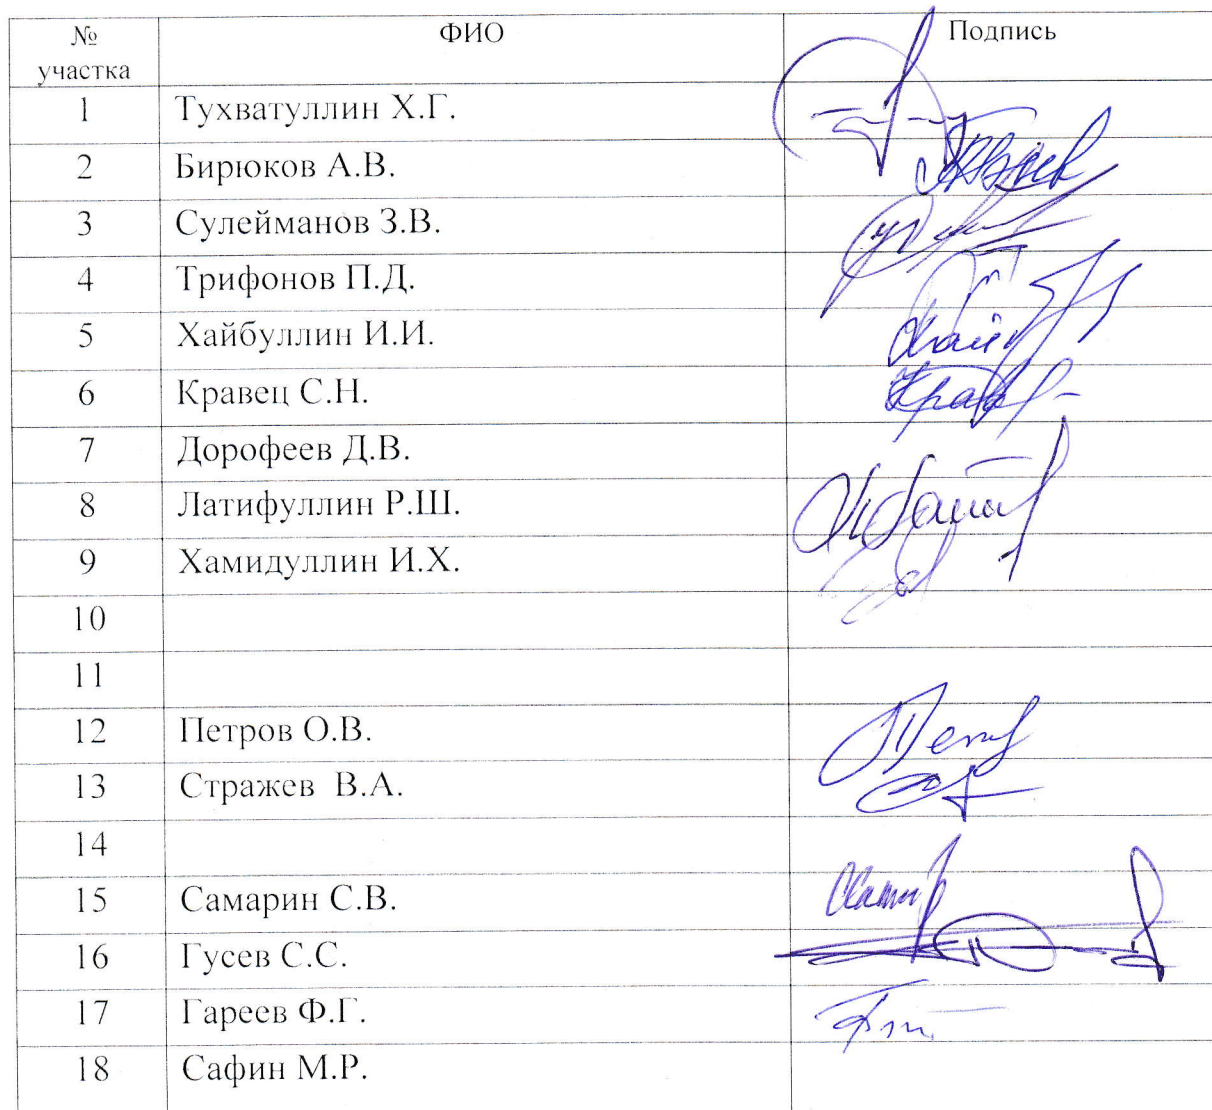 № участка ФИО Подпись
1 Тухватуллин Х.Г.
2 Бирюков А.В.
3 Сулейманов З.В.
4 Трифонов П.Д.
5 Хайбуллин И.И.
6 Кравец С.Н.
7 Дорофеев Д.В.
8 Латифуллин Р.Ш.
9 Хамидуллин И.Х.
10
11
12 Петров О.В.
13 Стражев В.А.
14
15 Самарин С.В.
16 Гусев С.С.
17 Гареев Ф.Г.
18 Сафин М.Р.